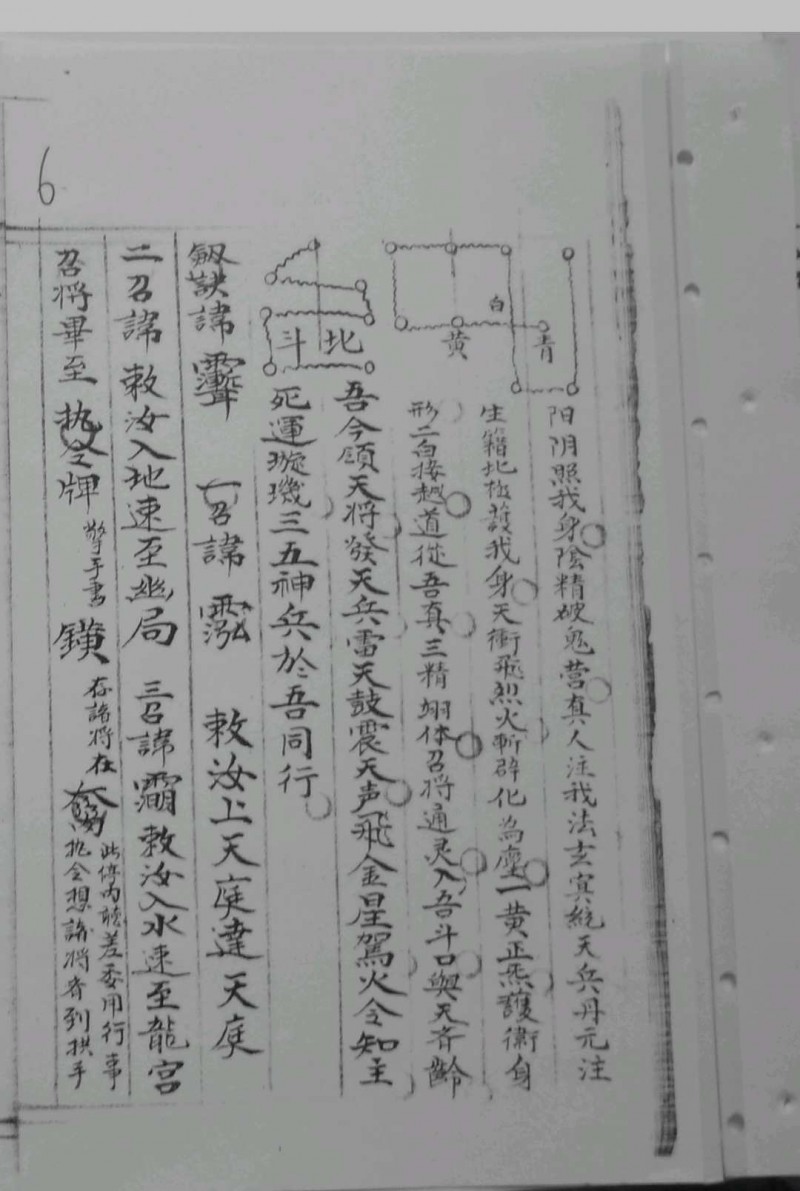 青
白
黄
北斗
阳阴照我身陰精破鬼营真人注我法玄寞統天兵丹元注
生籍北极護我身天衝飛烈火斬辟化為塵一黄正炁護衛身
形二白接越道從吾真三精翊体召将通灵入吾斗口與天齐齡
吾今領天将發天兵雷天鼓震天声飛金星駕火令知主
死運璇璣三五神兵於吾同行
劔訣諱 一召諱 敕汝上天庭達天庭
二召諱敕汝入地速至幽局 三召諱 敕汝入水速至龍宮
召将畢至执令牌 擎手書 鐄 存諸将在 此停内聽差委用行事 执令想諸将齐到拱手
6